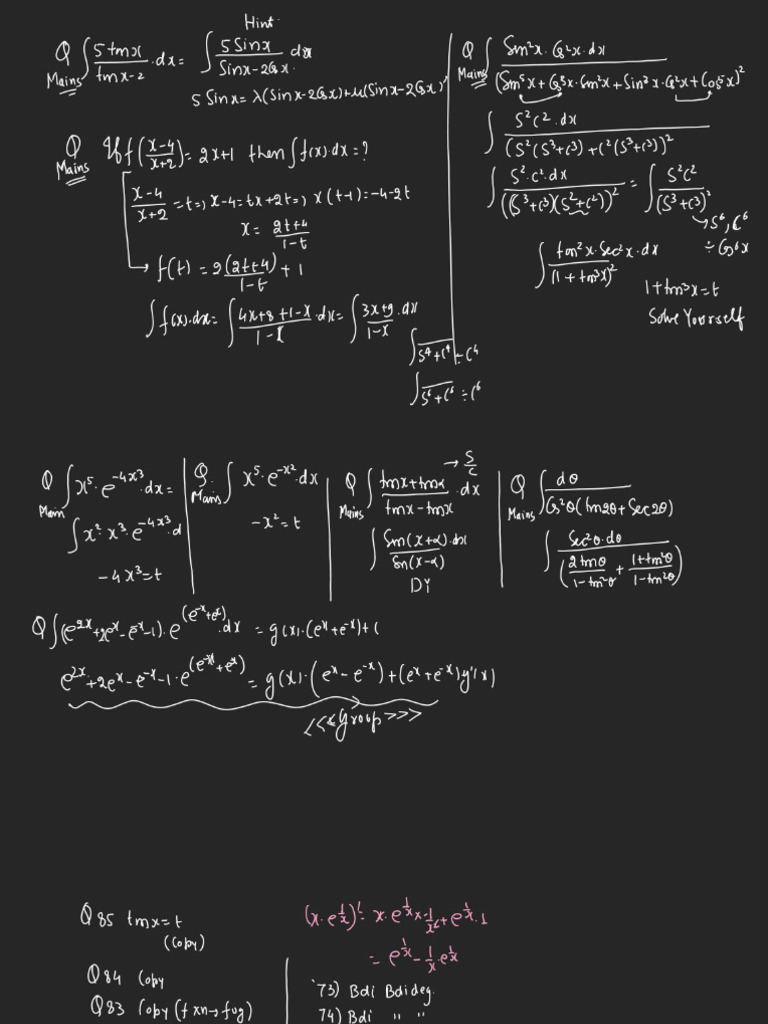 Hint.
Q Mains ∫ 5 tanx/(tanx-2) .dx = ∫ 5 Sinx/(Sinx-2Cosx) dx
5 Sinx = λ(Sinx-2Cosx)+μ(Sinx-2Cosx)'
Q Mains If f((x-4)/(x+2)) = 2x+1 then ∫f(x).dx = ?
(x-4)/(x+2) = t ⇒ x-4 = tx+2t ⇒ x(t-1) = -4-2t
x = (2t+4)/(1-t)
f(t) = 2(2t+4)/(1-t) + 1
∫f(x).dx = ∫ (4x+8+1-x)/(1-x) .dx = ∫ (3x+9)/(1-x) .dx
∫ /(S⁴+C⁴) ÷C⁴
∫ /(S⁶+C⁶) ÷C⁶
Q Mains ∫ Sin²x.Cos²x.dx/(Sin⁵x+Cos³x.Sin²x+Sin³x.Cos²x+Cos⁵x)²
∫ S²C².dx/(S²(S³+C³)+C²(S³+C³))²
∫ S².C².dx/((S³+C³)(S²+C²))² = ∫ S²C²/(S³+C³)²
→S⁶, C⁶
÷Cos⁶x
∫ tan²x.Sec²x.dx/(1+tan³x)²
1+tan³x=t
Solve Yourself
Q Main ∫x⁵.e^(-4x³).dx =
∫x².x³.e^(-4x³).d
-4x³=t
Q. Mains ∫ x⁵.e^(-x²).dx
-x²=t
Q Mains ∫ (tanx+tanα)/(tanx-tanx) .dx → S/C
∫ Sin(x+α).dx/Sin(x-α)
DY
Q Mains ∫ dθ/(Cos²θ(tan2θ+Sec2θ))
∫ Sec²θ.dθ/(2tanθ/(1-tan²θ) + (1+tan²θ)/(1-tan²θ))
Q ∫(e^(2x)+2e^x-e^(-x)-1).e^(e^(-x)+e^x).dx = g(x).(e^x+e^(-x))+C
e^(2x)+2e^x-e^(-x)-1.e^(e^(-x)+e^x) = g(x).(e^x-e^(-x))+(e^x+e^(-x))g'(x)
<<<Group>>>
Q85 tanx=t
(Copy)
Q84 Copy
Q83 Copy (fxn→fog)
(x.e^(1/x))' = x.e^(1/x)×-1/x²+e^(1/x).1
= e^(1/x)-1/x.e^(1/x)
73) Bdi Bdideg.
74) Bdi " "